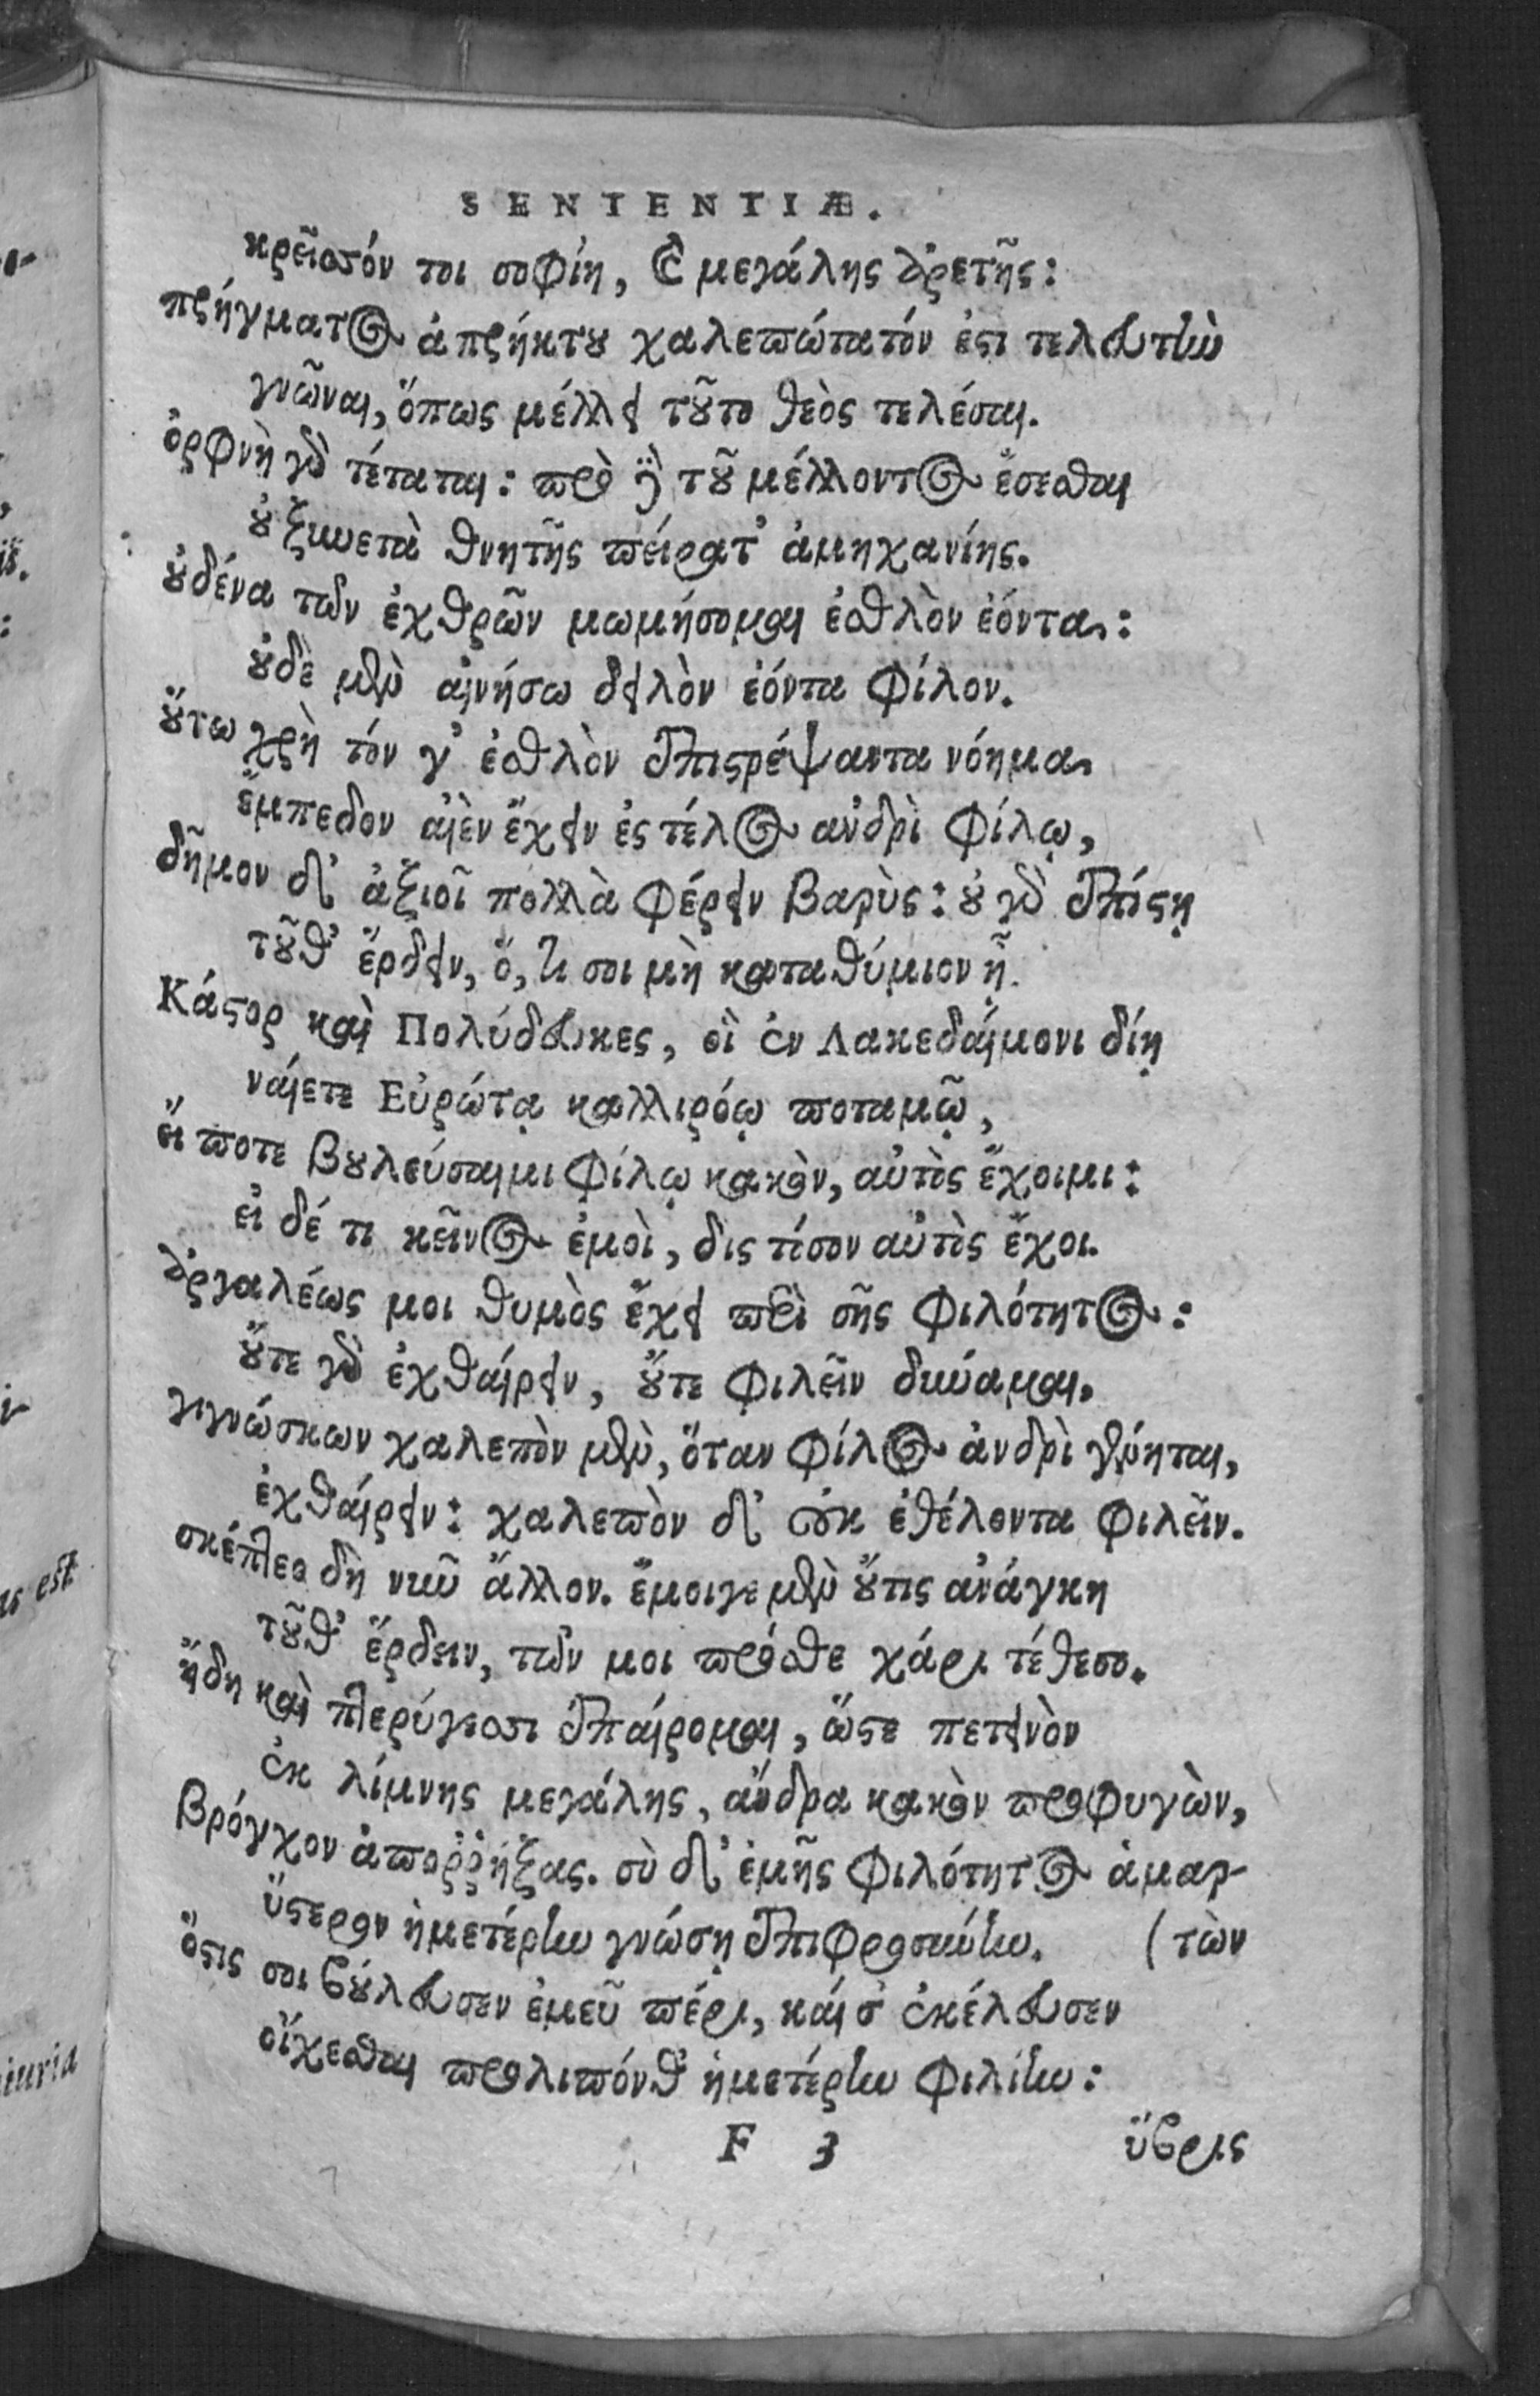 SENTENTIÆ.
κρεῖσσόν τοι σοφίη, καὶ μεγάλης ἀρετῆς:
πρήγματος ἀπρήκτου χαλεπώτατόν ἐστι τελευτὴν
γνῶναι, ὅπως μέλλει τοῦτο θεὸς τελέσαι.
ὀρφνὴ γὰρ τέταται: πρὸ δὲ τοῦ μέλλοντος ἔσεσθαι
οὐ ξυνετὰ θνητῆς πείρατ' ἀμηχανίης.
οὐδένα τῶν ἐχθρῶν μωμήσομαι ἐσθλὸν ἐόντα:
οὐδὲ μὲν αἰνήσω δειλὸν ἐόντα φίλον.
οὕτω χρὴ τόν γ' ἐσθλὸν ἐπιστρέψαντα νόημα
ἔμπεδον αἰὲν ἔχειν ἐς τέλος ἀνδρὶ φίλῳ,
δῆμον δ' ἀξιοῖ πολλὰ φέρειν βαρὺς: οὐ γὰρ ἐπίστῃ
τοῦθ' ἔρδειν, ὅ,τι σοι μὴ καταθύμιον ᾖ.
Κάστορ καὶ Πολύδευκες, οἳ ἐν Λακεδαίμονι δίῃ
ναίετε Εὐρώτᾳ καλλιρόῳ ποταμῷ,
εἴ ποτε βουλεύσαιμι φίλῳ κακὸν, αὐτὸς ἔχοιμι:
εἰ δέ τι κεῖνος ἐμοὶ, δὶς τόσον αὐτὸς ἔχοι.
ἀργαλέως μοι θυμὸς ἔχει περὶ σῆς φιλότητος:
οὔτε γὰρ ἐχθαίρειν, οὔτε φιλεῖν δύναμαι,
γιγνώσκων χαλεπὸν μὲν, ὅταν φίλος ἀνδρὶ γένηται,
ἐχθαίρειν: χαλεπὸν δ' οὐκ ἐθέλοντα φιλεῖν.
σκέπτεο δὴ νῦν ἄλλον. ἔμοιγε μὲν οὔτις ἀνάγκη
τοῦθ' ἔρδειν, τῶν μοι πρόσθε χάρι τέθεσο.
ἤδη καὶ πτερύγεσσι ἐπαίρομαι, ὥστε πετεινὸν
ἐκ λίμνης μεγάλης, ἄνδρα κακὸν προφυγὼν,
βρόγχον ἀποῤῥήξας. σὺ δ' ἐμῆς φιλότητος ἁμαρ-
ὕστερον ἡμετέρην γνώσῃ ἐπιφροσύνην. (τὼν
ὅστις σοι βούλευσεν ἐμεῦ πέρι, καί σ' ἐκέλευσεν
οἴχεσθαι προλιπόνθ' ἡμετέρην φιλίην:
F 3 ὕβρις